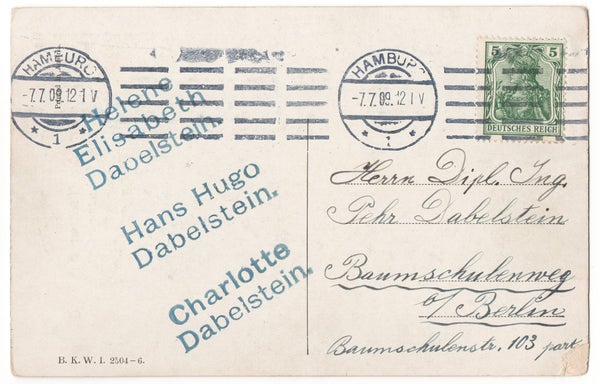 HAMBURG
-7.7.09.12-1 V
* 1 *
HAMBURG
-7.7.09.12-1 V
* 1 *
5 5
DEUTSCHES REICH
Helene
Elisabeth
Dabelstein.
Hans Hugo
Dabelstein.
Charlotte
Dabelstein.
Herrn Dipl. Ing.
Pehr Dabelstein
Baumschulenweg
b/Berlin
Baumschulenstr. 103 part
B. K. W. I. 2504-6.